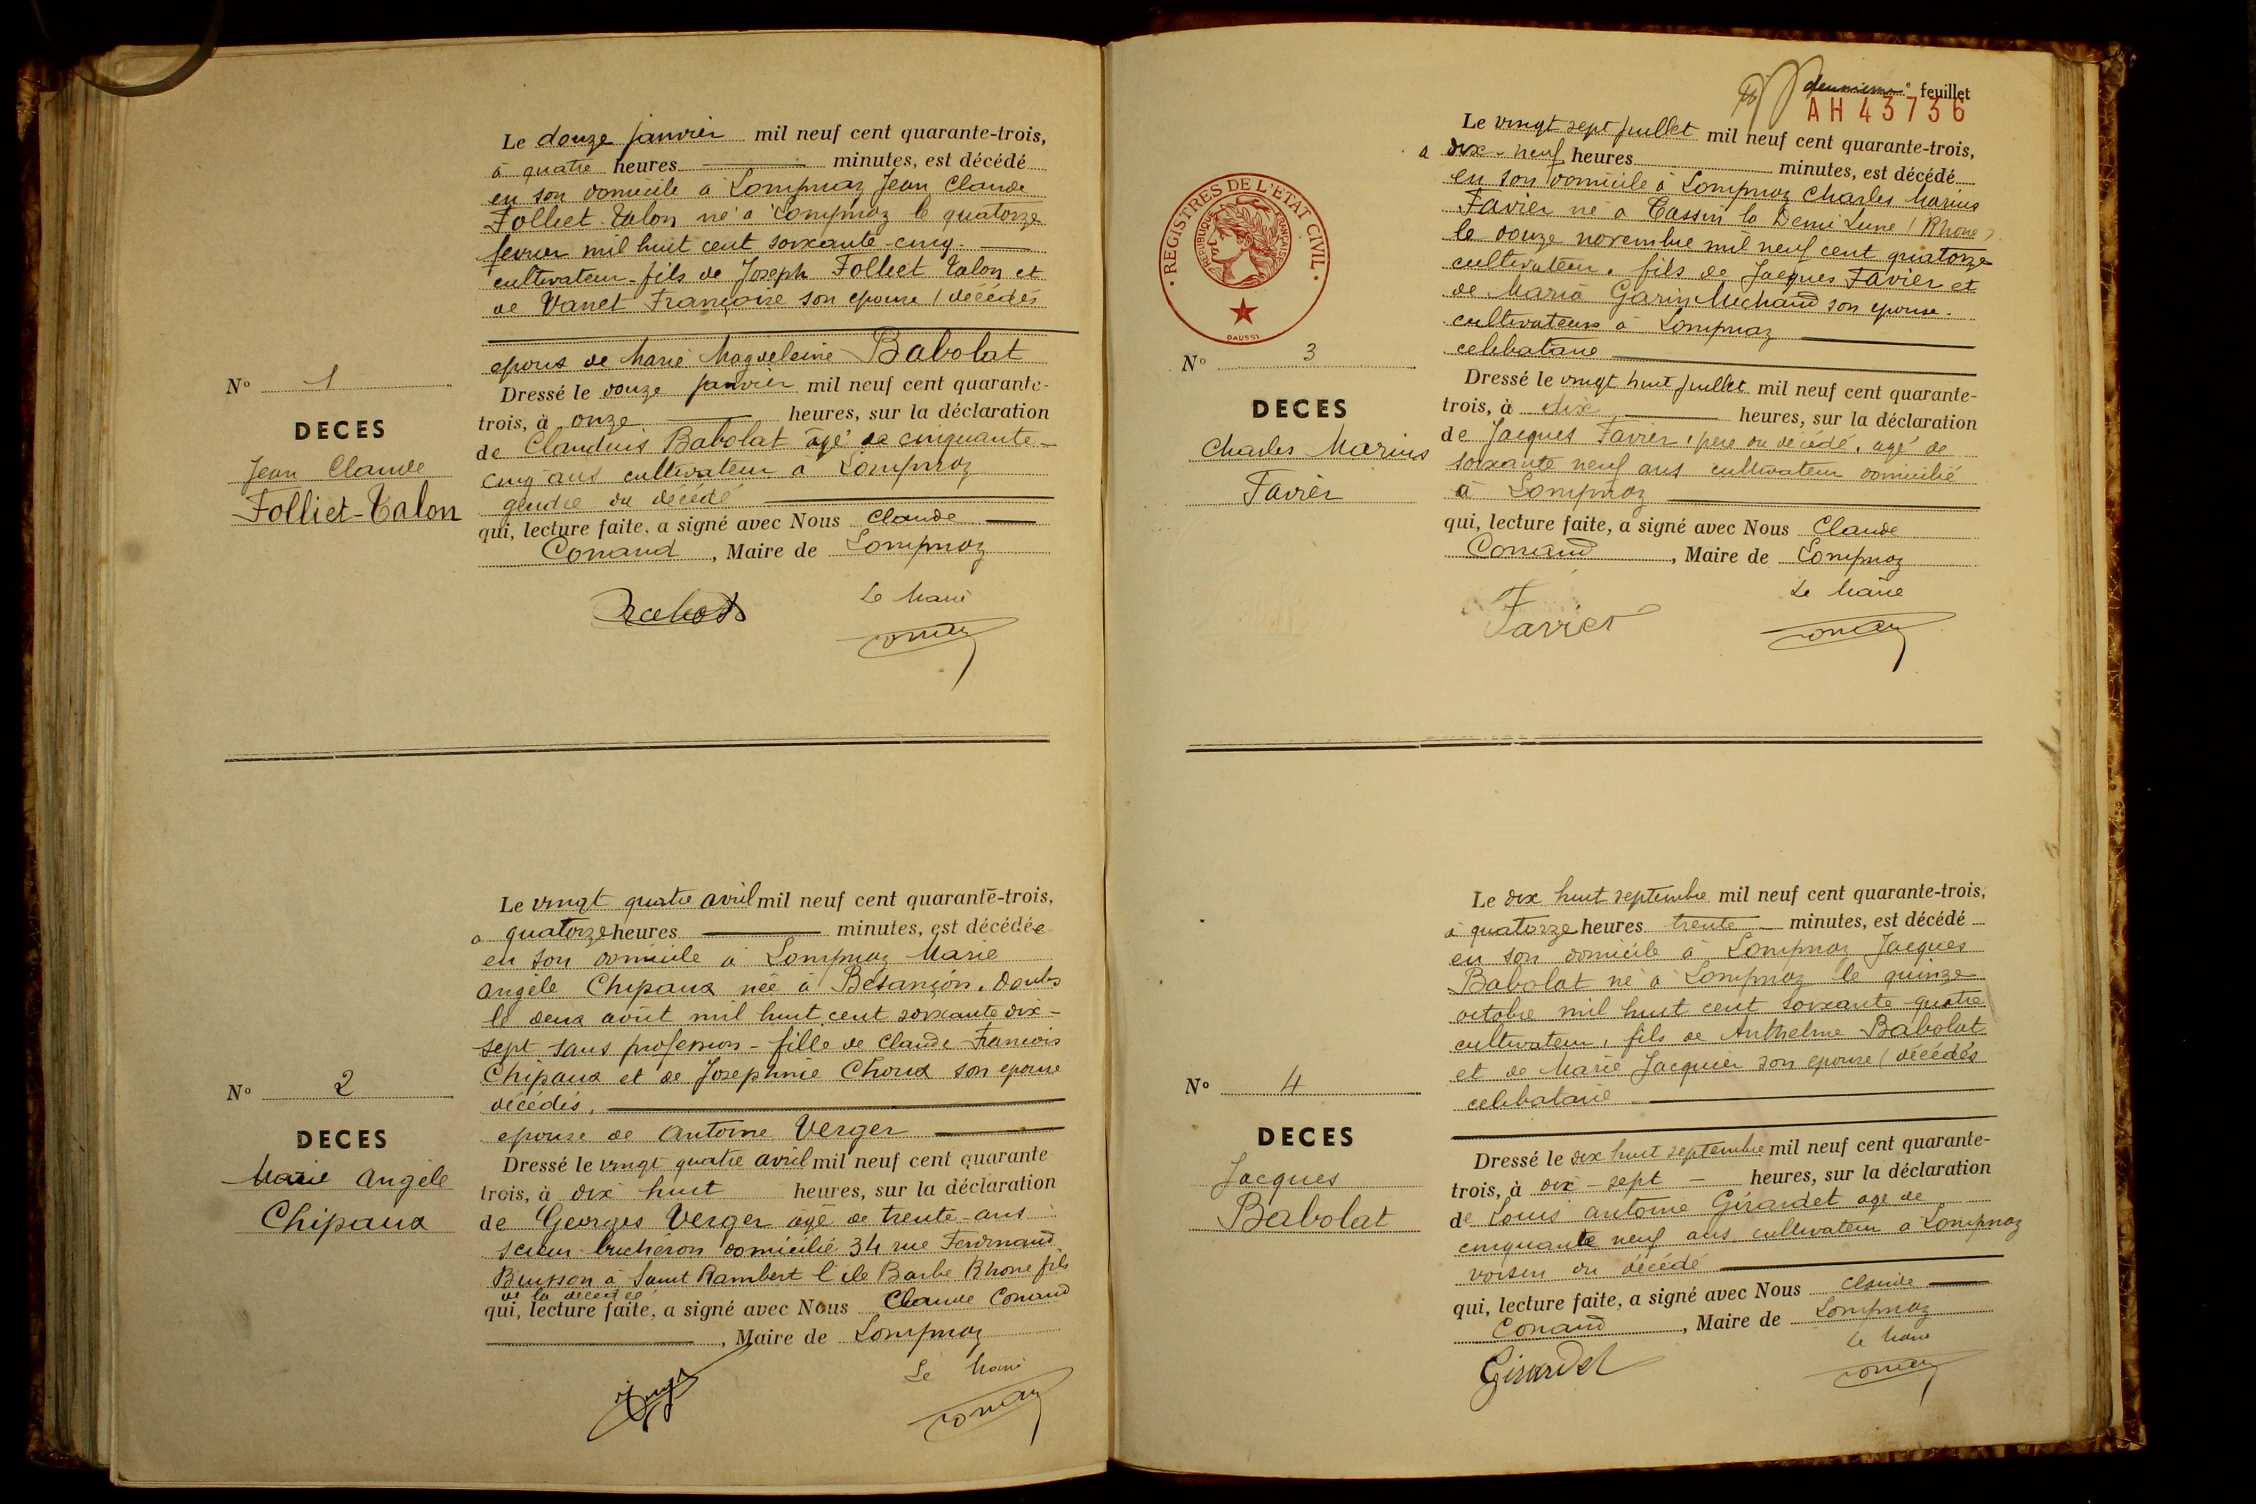 Le douze janvier mil neuf cent quarante-trois,
à quatre heures minutes, est décédé
en son domicile à Lompnaz Jean Claude
Folliet-Talon né à Lompnaz le quatorze
fevrier mil huit cent soixante-cinq.
cultivateur fils de Joseph Folliet Talon et
de Vanet Françoise son epouse / décédés
epous de Marie Magdeleine Babolat
N° 1
Dressé le douze janvier mil neuf cent quarante-
trois, à onze heures, sur la déclaration
DECES
de Claudius Babolat âgé de cinquante-
Jean Claude
cinq ans cultivateur à Lompnaz
Folliet-Talon
gendre du décédé
qui, lecture faite, a signé avec Nous Claude
Conand, Maire de Lompnaz
Le Maire
Le vingt quatre avril mil neuf cent quarante-trois,
a quatorze heures minutes, est décédée
en son domicile à Lompnaz Marie
Angèle Chipaux née à Besançon. Doubs
le deux août mil huit cent soixante dix-
sept sans profession - fille de Claude François
Chipaux et de Josephine Choux son epouse
N° 2
décédés.
epouse de Antoine Verger
DECES
Dressé le vingt quatre avril mil neuf cent quarante
Marie Angèle
trois, à dix huit heures, sur la déclaration
Chipaux
de Georges Verger âgé de trente ans
scieur bucheron domicilié 34 rue Ferdinand
Buisson à Saint Rambert l'ile Barbe Rhone fils
de la décédée
qui, lecture faite, a signé avec Nous Claude Conand
, Maire de Lompnaz
Le Maire
deuxième feuillet
AH43736
Le vingt sept juillet mil neuf cent quarante-trois,
a dix-neuf heures minutes, est décédé
en son domicile à Lompnaz Charles Marius
Favier né à Tassin la Demi Lune (Rhone)
le douze novembre mil neuf cent quatorze
cultivateur. fils de Jacques Favier et
de Maria Garin Michaud son epouse.
cultivateurs à Lompnaz
celibataire
REGISTRES DE L'ETAT CIVIL
REPUBLIQUE FRANÇAISE
DAUSSY
N° 3
Dressé le vingt huit juillet mil neuf cent quarante-
trois, à dix heures, sur la déclaration
DECES
de Jacques Favier, pere du décédé, agé de
Charles Marius
soixante neuf ans cultivateur domicilié
Favier
à Lompnaz
qui, lecture faite, a signé avec Nous Claude
Conand, Maire de Lompnaz
Le Maire
Favier
Le dix huit septembre mil neuf cent quarante-trois,
à quatorze heures trente minutes, est décédé
en son domicile à Lompnaz Jacques
Babolat né à Lompnaz le quinze
octobre mil huit cent soixante-quatre
cultivateur, fils de Anthelme Babolat
et de Marie Jacquier son epouse / décédés
N° 4
celibataire
DECES
Dressé le dix huit septembre mil neuf cent quarante-
Jacques
trois, à dix-sept heures, sur la déclaration
Babolat
de Louis Antoine Girardet agé de
cinquante neuf ans cultivateur à Lompnaz
voisin du décédé
qui, lecture faite, a signé avec Nous Claude
Conand, Maire de Lompnaz
Le Maire
Girardet